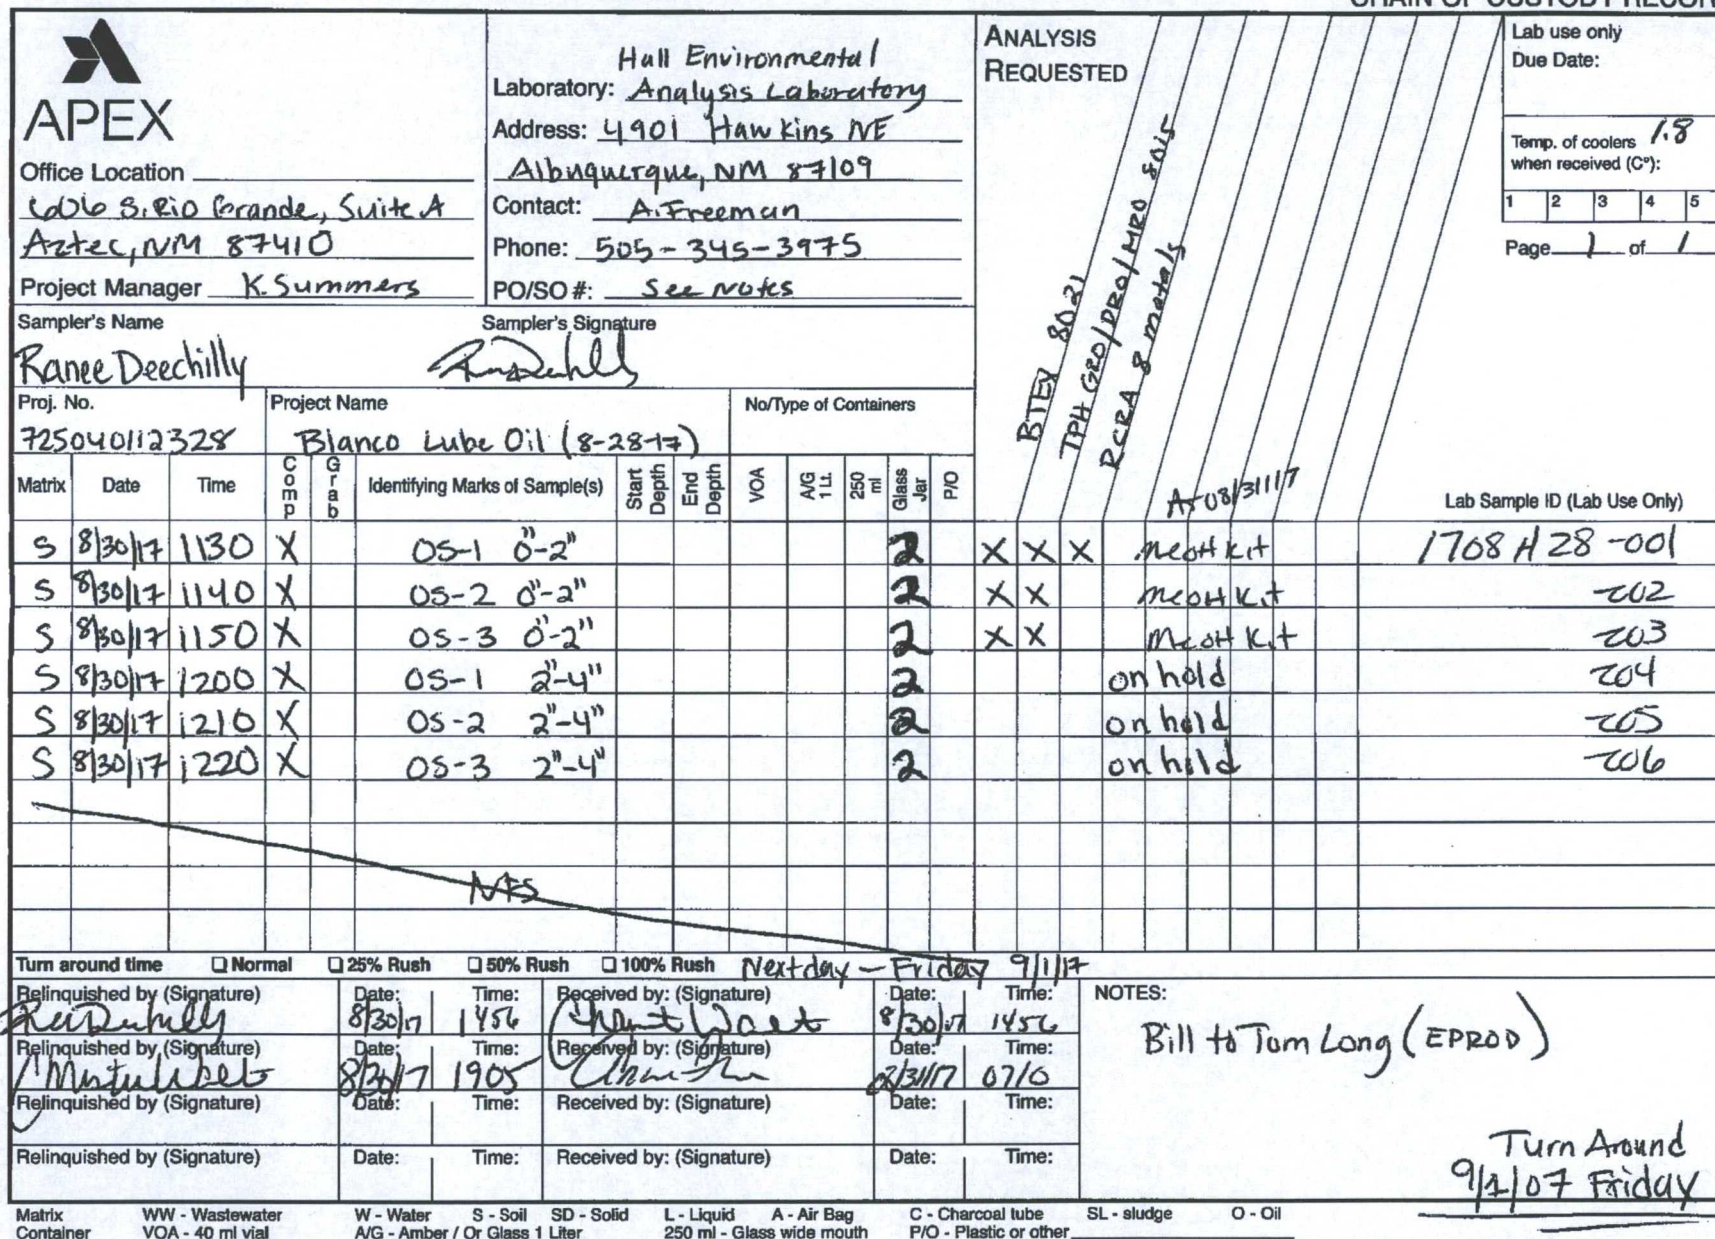 CHAIN OF CUSTODY RECOR
APEX
Office Location
606 S. Rio Grande, Suite A
Aztec, NM 87410
Project Manager K. Summers
Hall Environmental
Laboratory: Analysis Laboratory
Address: 4901 Hawkins NE
Albuquerque, NM 87109
Contact: A. Freeman
Phone: 505-345-3975
PO/SO #: See Notes
ANALYSIS
REQUESTED
BTEX 8021
TPH GRO/DRO/MRO 8015
RCRA 8 metals
Lab use only
Due Date:
Temp. of coolers 1.8
when received (C°):
1 2 3 4 5
Page 1 of 1
Sampler's Name
Ranee Deechilly
Sampler's Signature
Proj. No.
725040112328
Project Name
Blanco Lube Oil (8-28-17)
No/Type of Containers
Matrix Date Time Comp Grab Identifying Marks of Sample(s) Start Depth End Depth VOA A/G 1 Lt. 250 ml Glass Jar P/O 08/31/17 Lab Sample ID (Lab Use Only)
S 8/30/17 1130 X OS-1 0"-2" 2 X X X MeOH Kit 1708H28-001
S 8/30/17 1140 X OS-2 0"-2" 2 X X MeOH Kit -002
S 8/30/17 1150 X OS-3 0"-2" 2 X X MeOH Kit -003
S 8/30/17 1200 X OS-1 2"-4" 2 on hold -004
S 8/30/17 1210 X OS-2 2"-4" 2 on hold -005
S 8/30/17 1220 X OS-3 2"-4" 2 on hold -006
NFS
Turn around time Normal 25% Rush 50% Rush 100% Rush Next day - Friday 9/1/17
Relinquished by (Signature) Date: Time: Received by: (Signature) Date: Time:
8/30/17 1456 8/30/17 1456
Relinquished by (Signature) Date: Time: Received by: (Signature) Date: Time:
8/30/17 1905 0710
Relinquished by (Signature) Date: Time: Received by: (Signature) Date: Time:
Relinquished by (Signature) Date: Time: Received by: (Signature) Date: Time:
NOTES:
Bill to Tom Long (EPROD)
Turn Around
9/1/07 Friday
Matrix WW - Wastewater W - Water S - Soil SD - Solid L - Liquid A - Air Bag C - Charcoal tube SL - sludge O - Oil
Container VOA - 40 ml vial A/G - Amber / Or Glass 1 Liter 250 ml - Glass wide mouth P/O - Plastic or other